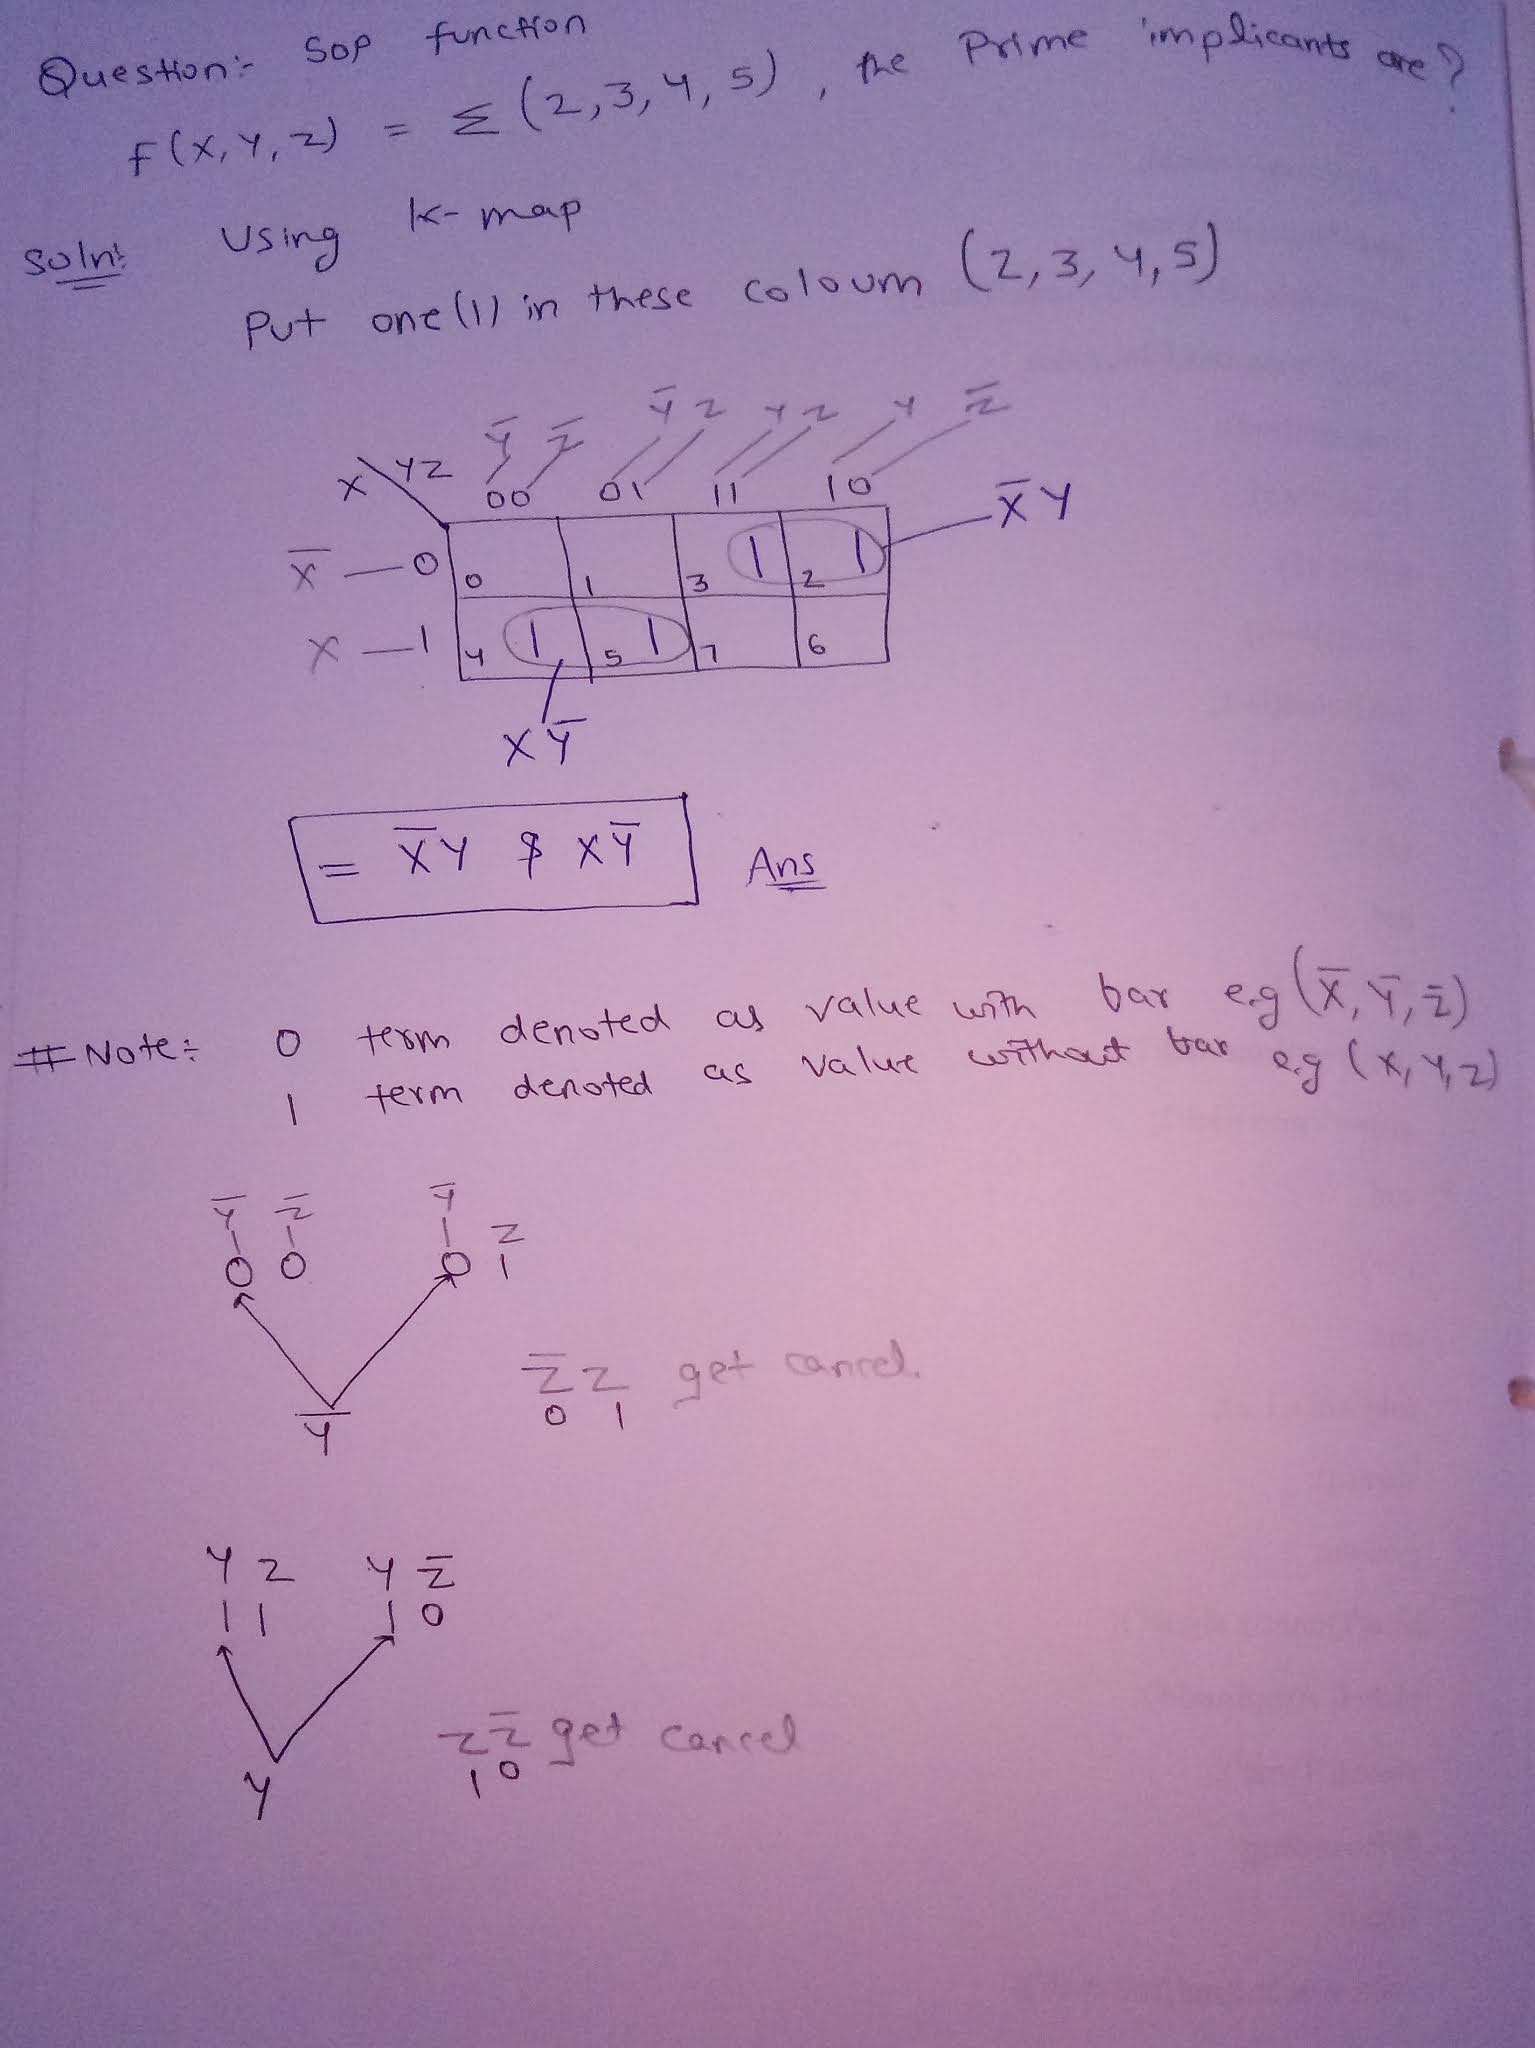 Question:- SOP function
F(X, Y, Z) = Σ (2, 3, 4, 5) , the Prime implicants are?
Soln: Using K-map
Put one (1) in these coloum (2, 3, 4, 5)
Y̅ Z̅ Y̅ Z Y Z Y Z̅
X YZ 00 01 11 10
X̅ — 0 0 1 3 1 2 1 X̅ Y
X — 1 4 1 5 1 7 6
X Y̅
= X̅Y & XY̅ Ans
# Note: 0 term denoted as value with bar e.g (X̅, Y̅, Z̅)
1 term denoted as value without bar e.g (X, Y, Z)
Y̅ Z̅ Y̅ Z
0 0 0 1
Z̅ Z get cancel.
0 1
Y̅
Y Z Y Z̅
1 1 1 0
Z Z̅ get cancel
1 0
Y